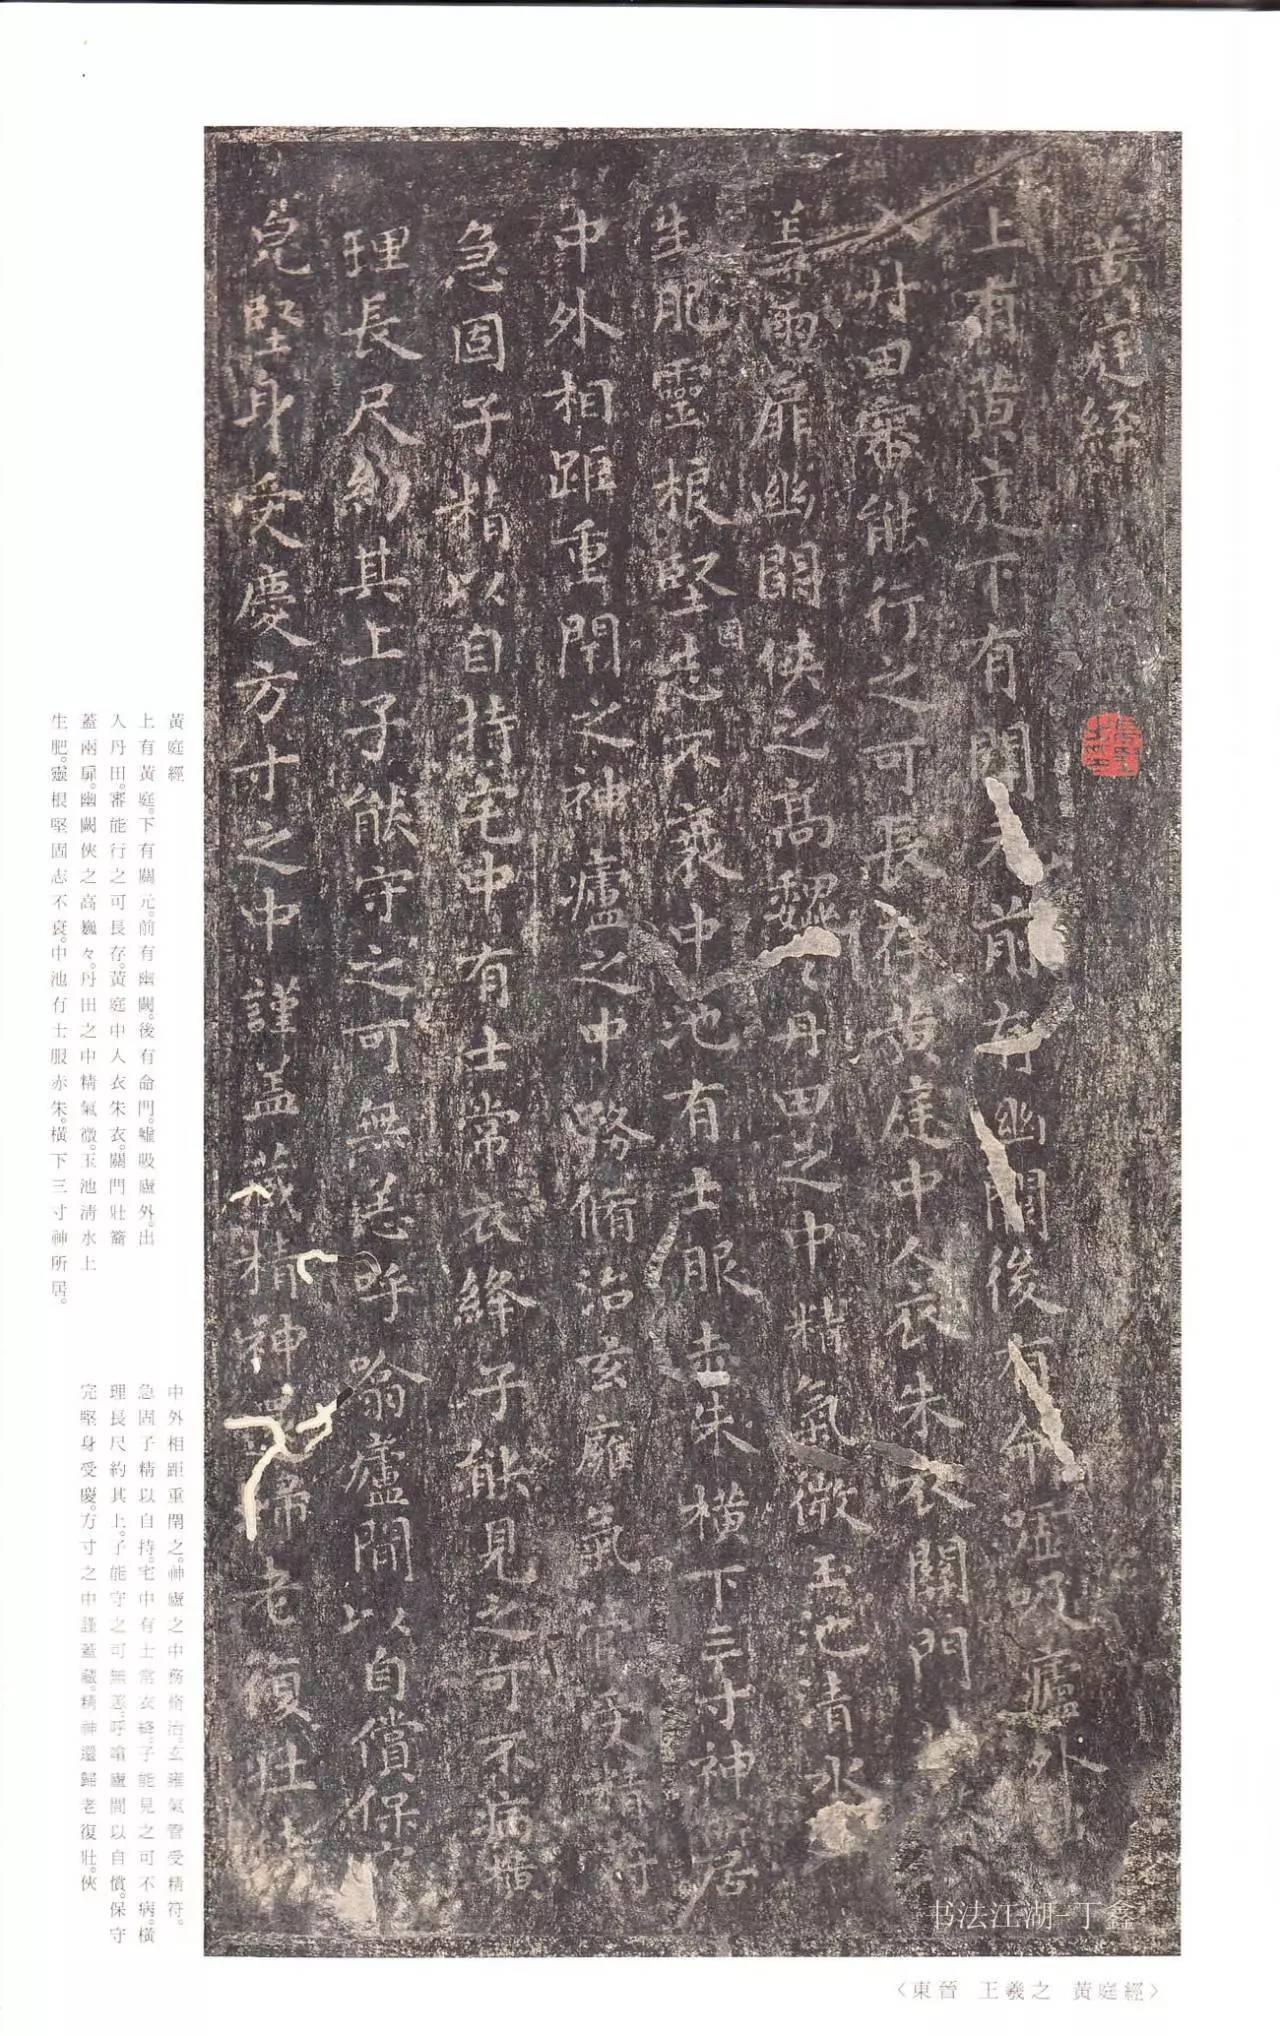 黃庭經
上有黃庭下有關元前有幽闕後有命門噓吸廬外
入丹田審能行之可長存黃庭中人衣朱衣關門壯
蓋兩扉幽闕俠之高巍々丹田之中精氣微玉池清水上
生肥靈根堅固志不衰中池有士服赤朱橫下三寸神所居
中外相距重閉之神廬之中務脩治玄雍氣管受精符
急固子精以自持宅中有士常衣絳子能見之可不病橫
理長尺約其上子能守之可無恙呼噏廬間以自償保守
完堅身受慶方寸之中謹蓋藏精神還歸老復壯俠
书法江湖-丁鑫
〈東晉 王羲之 黃庭經〉
黃庭經
上有黃庭。下有關元。前有幽闕。後有命門。噓吸廬外。出
入丹田。審能行之可長存。黃庭中人衣朱衣。關門壯籥
蓋兩扉。幽闕俠之高巍々。丹田之中精氣微。玉池清水上
生肥。靈根堅固志不衰。中池有士服赤朱。橫下三寸神所居。
中外相距重閉之。神廬之中務脩治。玄雍氣管受精符。
急固子精以自持。宅中有士常衣絳。子能見之可不病。橫
理長尺約其上。子能守之可無恙。呼噏廬間以自償。保守
完堅身受慶。方寸之中謹蓋藏。精神還歸老復壯。俠